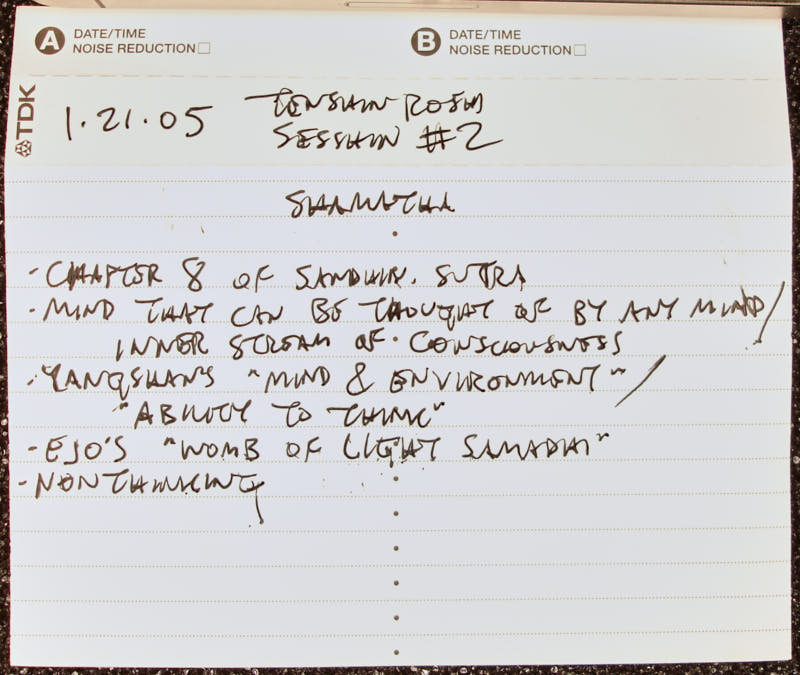 A DATE/TIME
NOISE REDUCTION
B DATE/TIME
NOISE REDUCTION
TDK
1.21.05 TENSHIN ROSHI
SESSHIN #2
SHAMATHA
- CHAPTER 8 OF SANDHIN. SUTRA
- MIND THAT CAN BE THOUGHT OF BY ANY MIND/
INNER STREAM OF CONSCIOUSNESS
- YANGSHAN'S "MIND & ENVIRONMENT"/
"ABILITY TO THINK"
- EJO'S "WOMB OF LIGHT SAMADHI"
- NONTHINKING